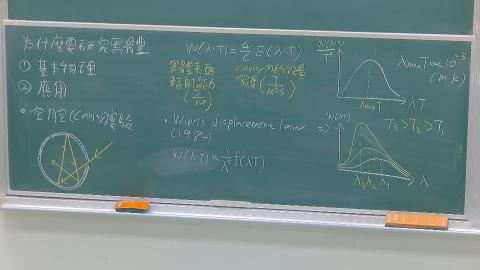 為什麼要研究黑體
① 基本物理
② 應用
• 空腔(Cavity)實驗
W(λ·T) = c/4 E(λ·T)
黑體表面
輻射能力
cavity內的能量
密度
• Wien's displacement law
W(λ·T) = 1/λ⁵ f(λT)
W(λT)
T⁵
λmT
λT
λmT ≈ 10⁻³
(m·k)
⇒
W(λT)
T₃ > T₂ > T₁
λ₃ λ₂ λ₁
λ